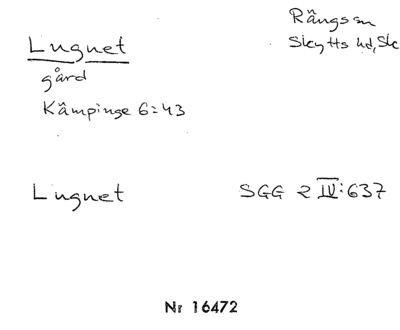 Rängs sn
Lugnet
Skytts hd, Sk
gård
Kämpinge 6:43
Lugnet SGG 2 IV:637
Nr 16472